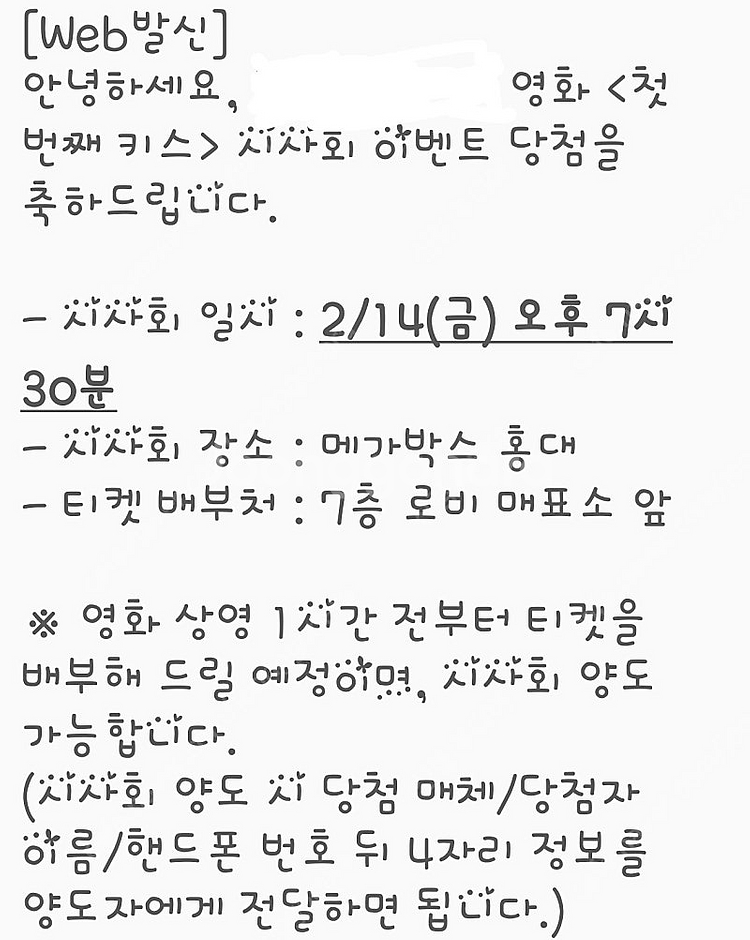 [Web발신]
안녕하세요, 영화 <첫
번째 키스> 시사회 이벤트 당첨을
축하드립니다.
- 시사회 일시 : 2/14(금) 오후 7시
30분
- 시사회 장소 : 메가박스 홍대
- 티켓 배부처 : 7층 로비 매표소 앞
※ 영화 상영 1시간 전부터 티켓을
배부해 드릴 예정이며, 시사회 양도
가능합니다.
(시사회 양도 시 당첨 매체/당첨자
이름/핸드폰 번호 뒤 4자리 정보를
양도자에게 전달하면 됩니다.)